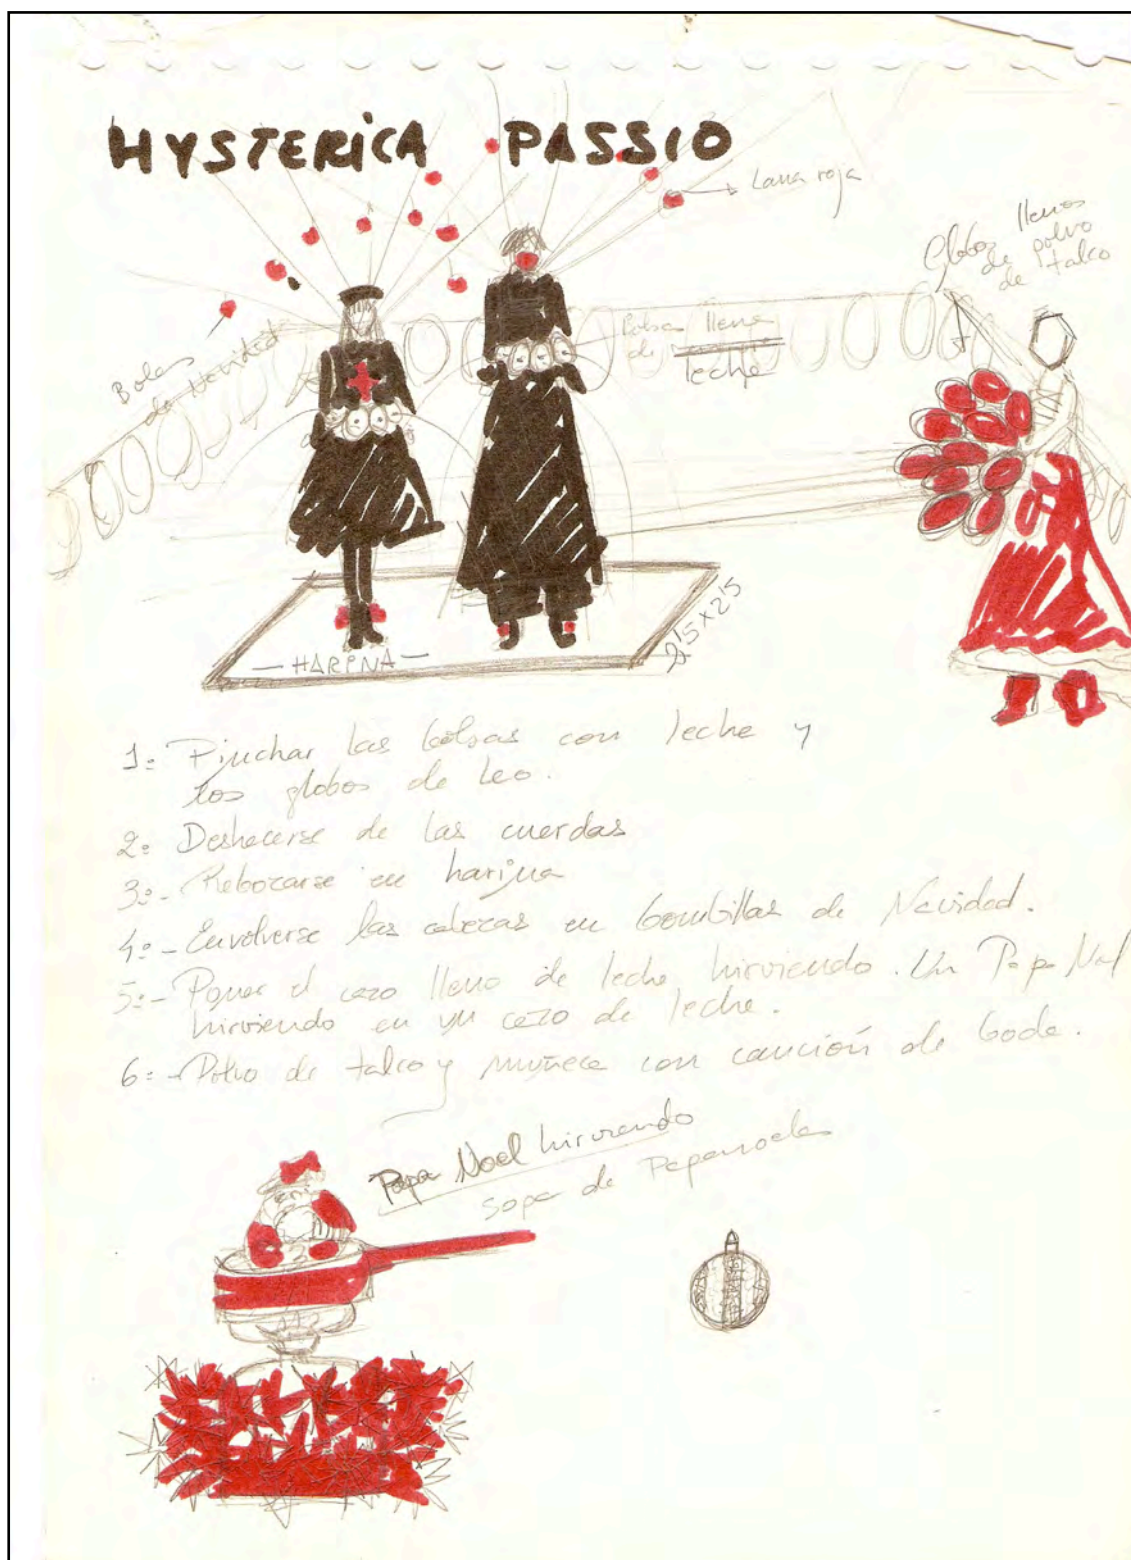 HYSTERICA PASSIO
Lana roja
Globos llenos
de polvo
de talco
Bolas
de Navidad
Bolsa llena
de leche
2'5 x 2'5
- HARINA -
1º Pinchar las bolsas con leche y
los globos de Leo.
2º Deshacerse de las cuerdas
3º - Rebozarse en harina
4º - Envolverse las cabezas en bombillas de Navidad.
5º - Poner el cazo lleno de leche hirviendo. Un Papa Noel
hirviendo en un cazo de leche.
6º - Polvo de talco y muñeca con canción de boda.
Papa Noel hirviendo
sopa de Papanoeles